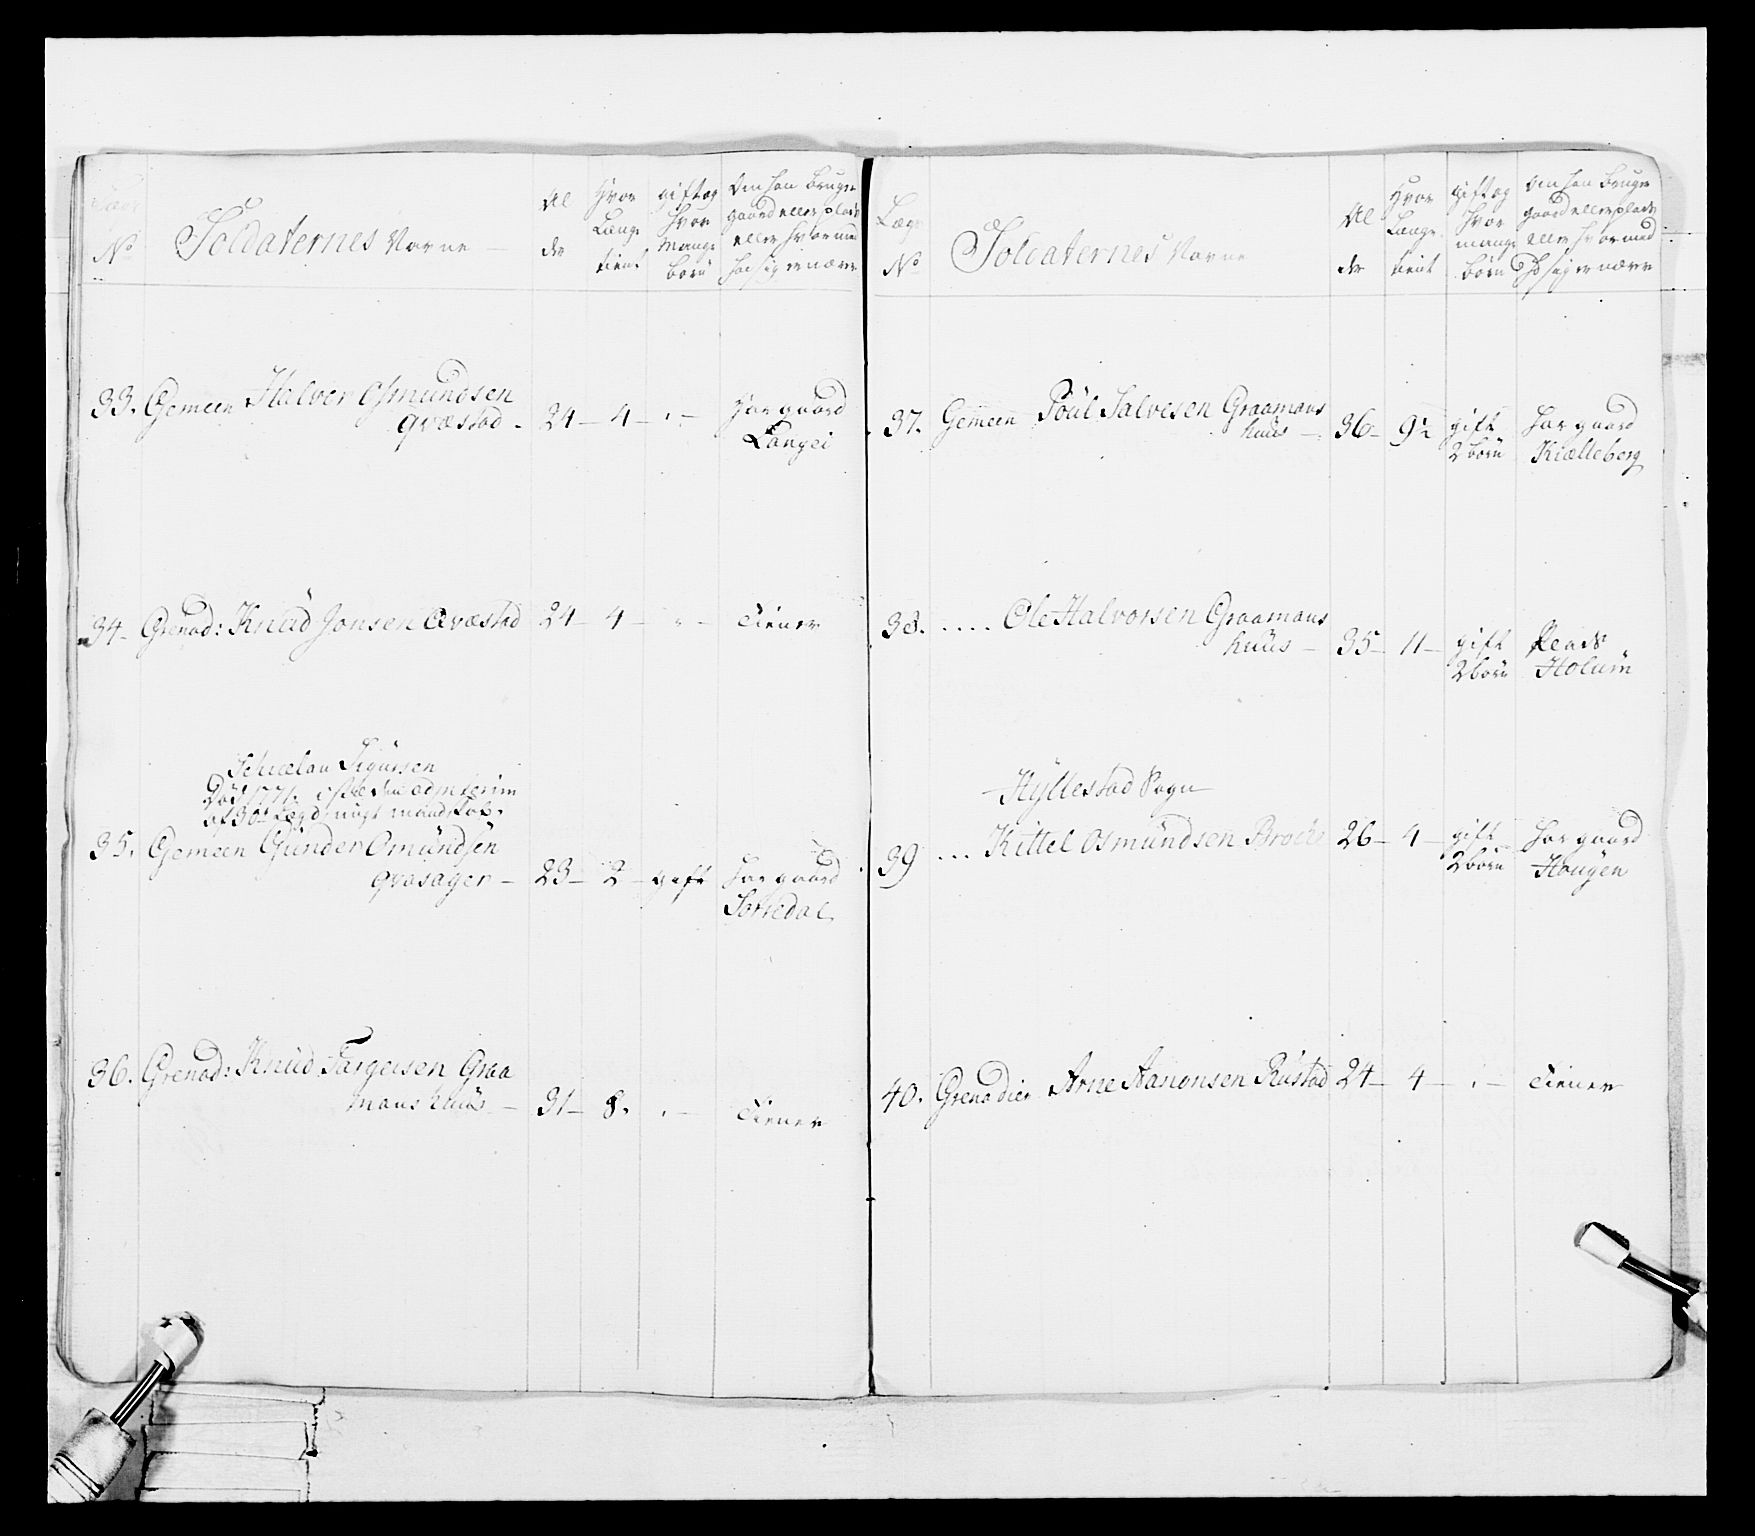 Lægs
No
Soldaternes Navne
Al
der
Hvor
Længe
tient
gift og
hvor
mange
børn
Om han bruger
gaard eller plads
eller hvormed
han sig ernærer
33. Gemeen Halvor Osmundsen
Qvæstad - 24 - 4 - " - Har gaard
Langei
34 - Grenad: Knud Jonsen Qvæstad 24 - 4 - " - Tiener
Sigursen
Død 1771
35. Gemeen Gunder Omundsen
Qvasager - 23 - 2 - gift har gaard
36. Grenad: Knud Targersen Graa
mans huus - 31 - 8. " - Tiener
Lægs
No
Soldaternes Navne
Al
der
Hvor
Længe
tient
gift og
hvor
mange
børn
Om han bruger
gaard eller plads
eller hvormed
h sig ernærer
37. Gemeen Poul Salvesen Graamans
huus - 36 - 9½ gift har gaard
2 børn Kielleberg
38. .... Ole Halvorsen Graamans
huus - 35 - 11 - gift Plads
2 børn Holum
Hyllestad Sogn
39 ... Kittel Osmundsen Broche 26 - 4 - gift har gaard
2 børn Hougen
40. Grenadier Arne Aanonsen Rustad 24 - 4 - " - Tiener